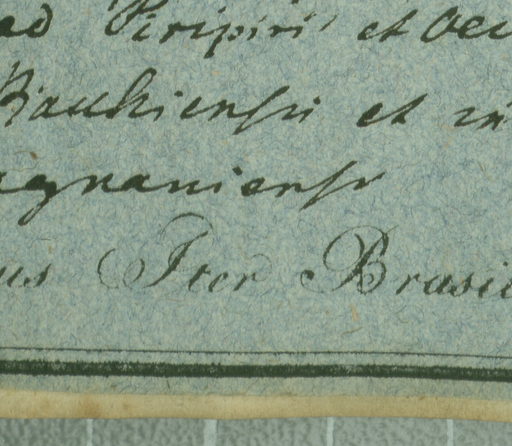 ad Piripiri et Oei
Bauhiensi et in
agnaniensi
us Iter Brasil